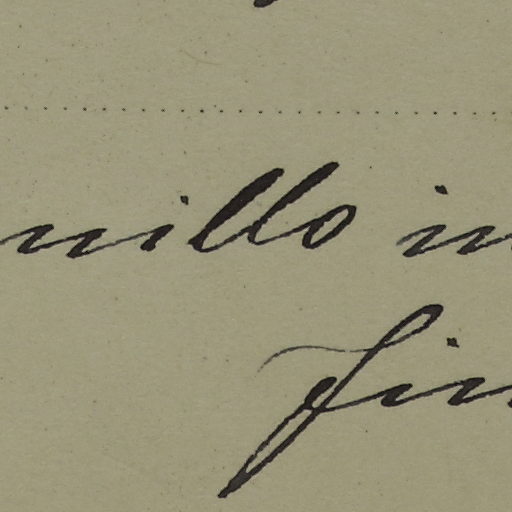 nillo in
fin